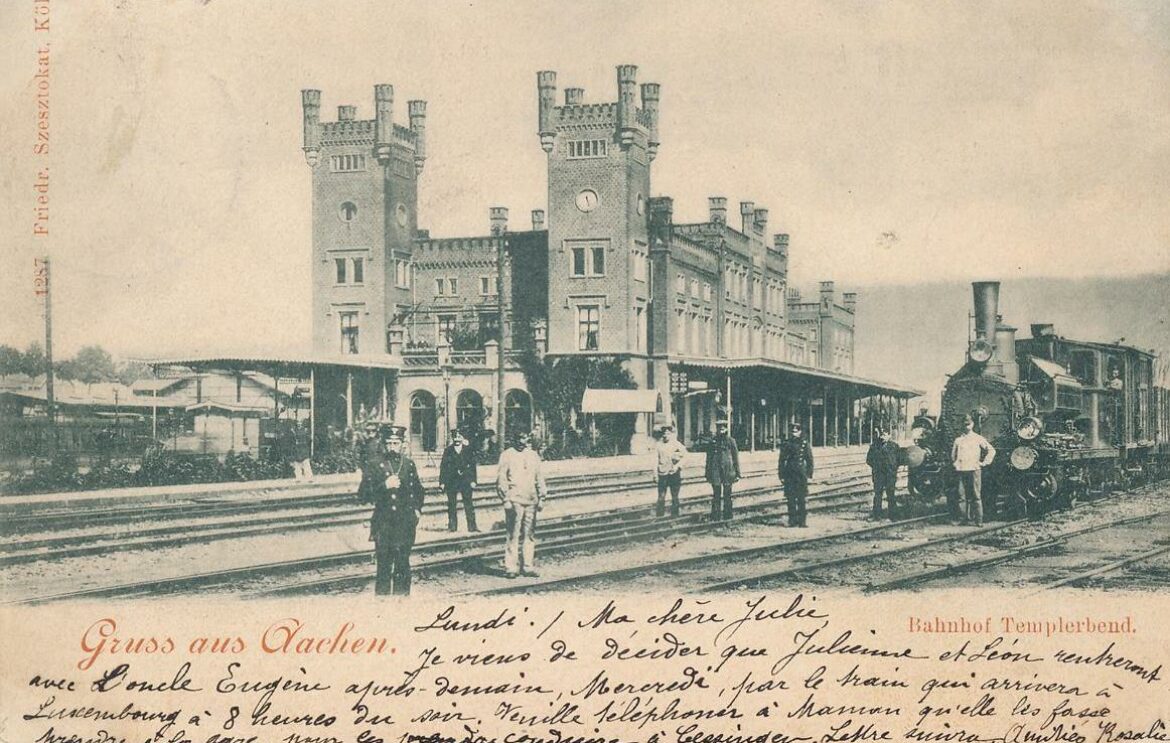 1287 Friedr. Szesztokat, Köl
Gruss aus Aachen.
Bahnhof Templerbend.
Lundi. / Ma chère Julie,
Je viens de décider que Julienne et Léon rentreront
avec L'oncle Eugène après-demain, Mercredi, par le train qui arrivera à
Luxembourg à 8 heures du soir. Veuille téléphoner à Maman qu'elle les fasse
prendre à la gare pour les conduire à Cessingen. Lettre suivra Amitiés Rosalie